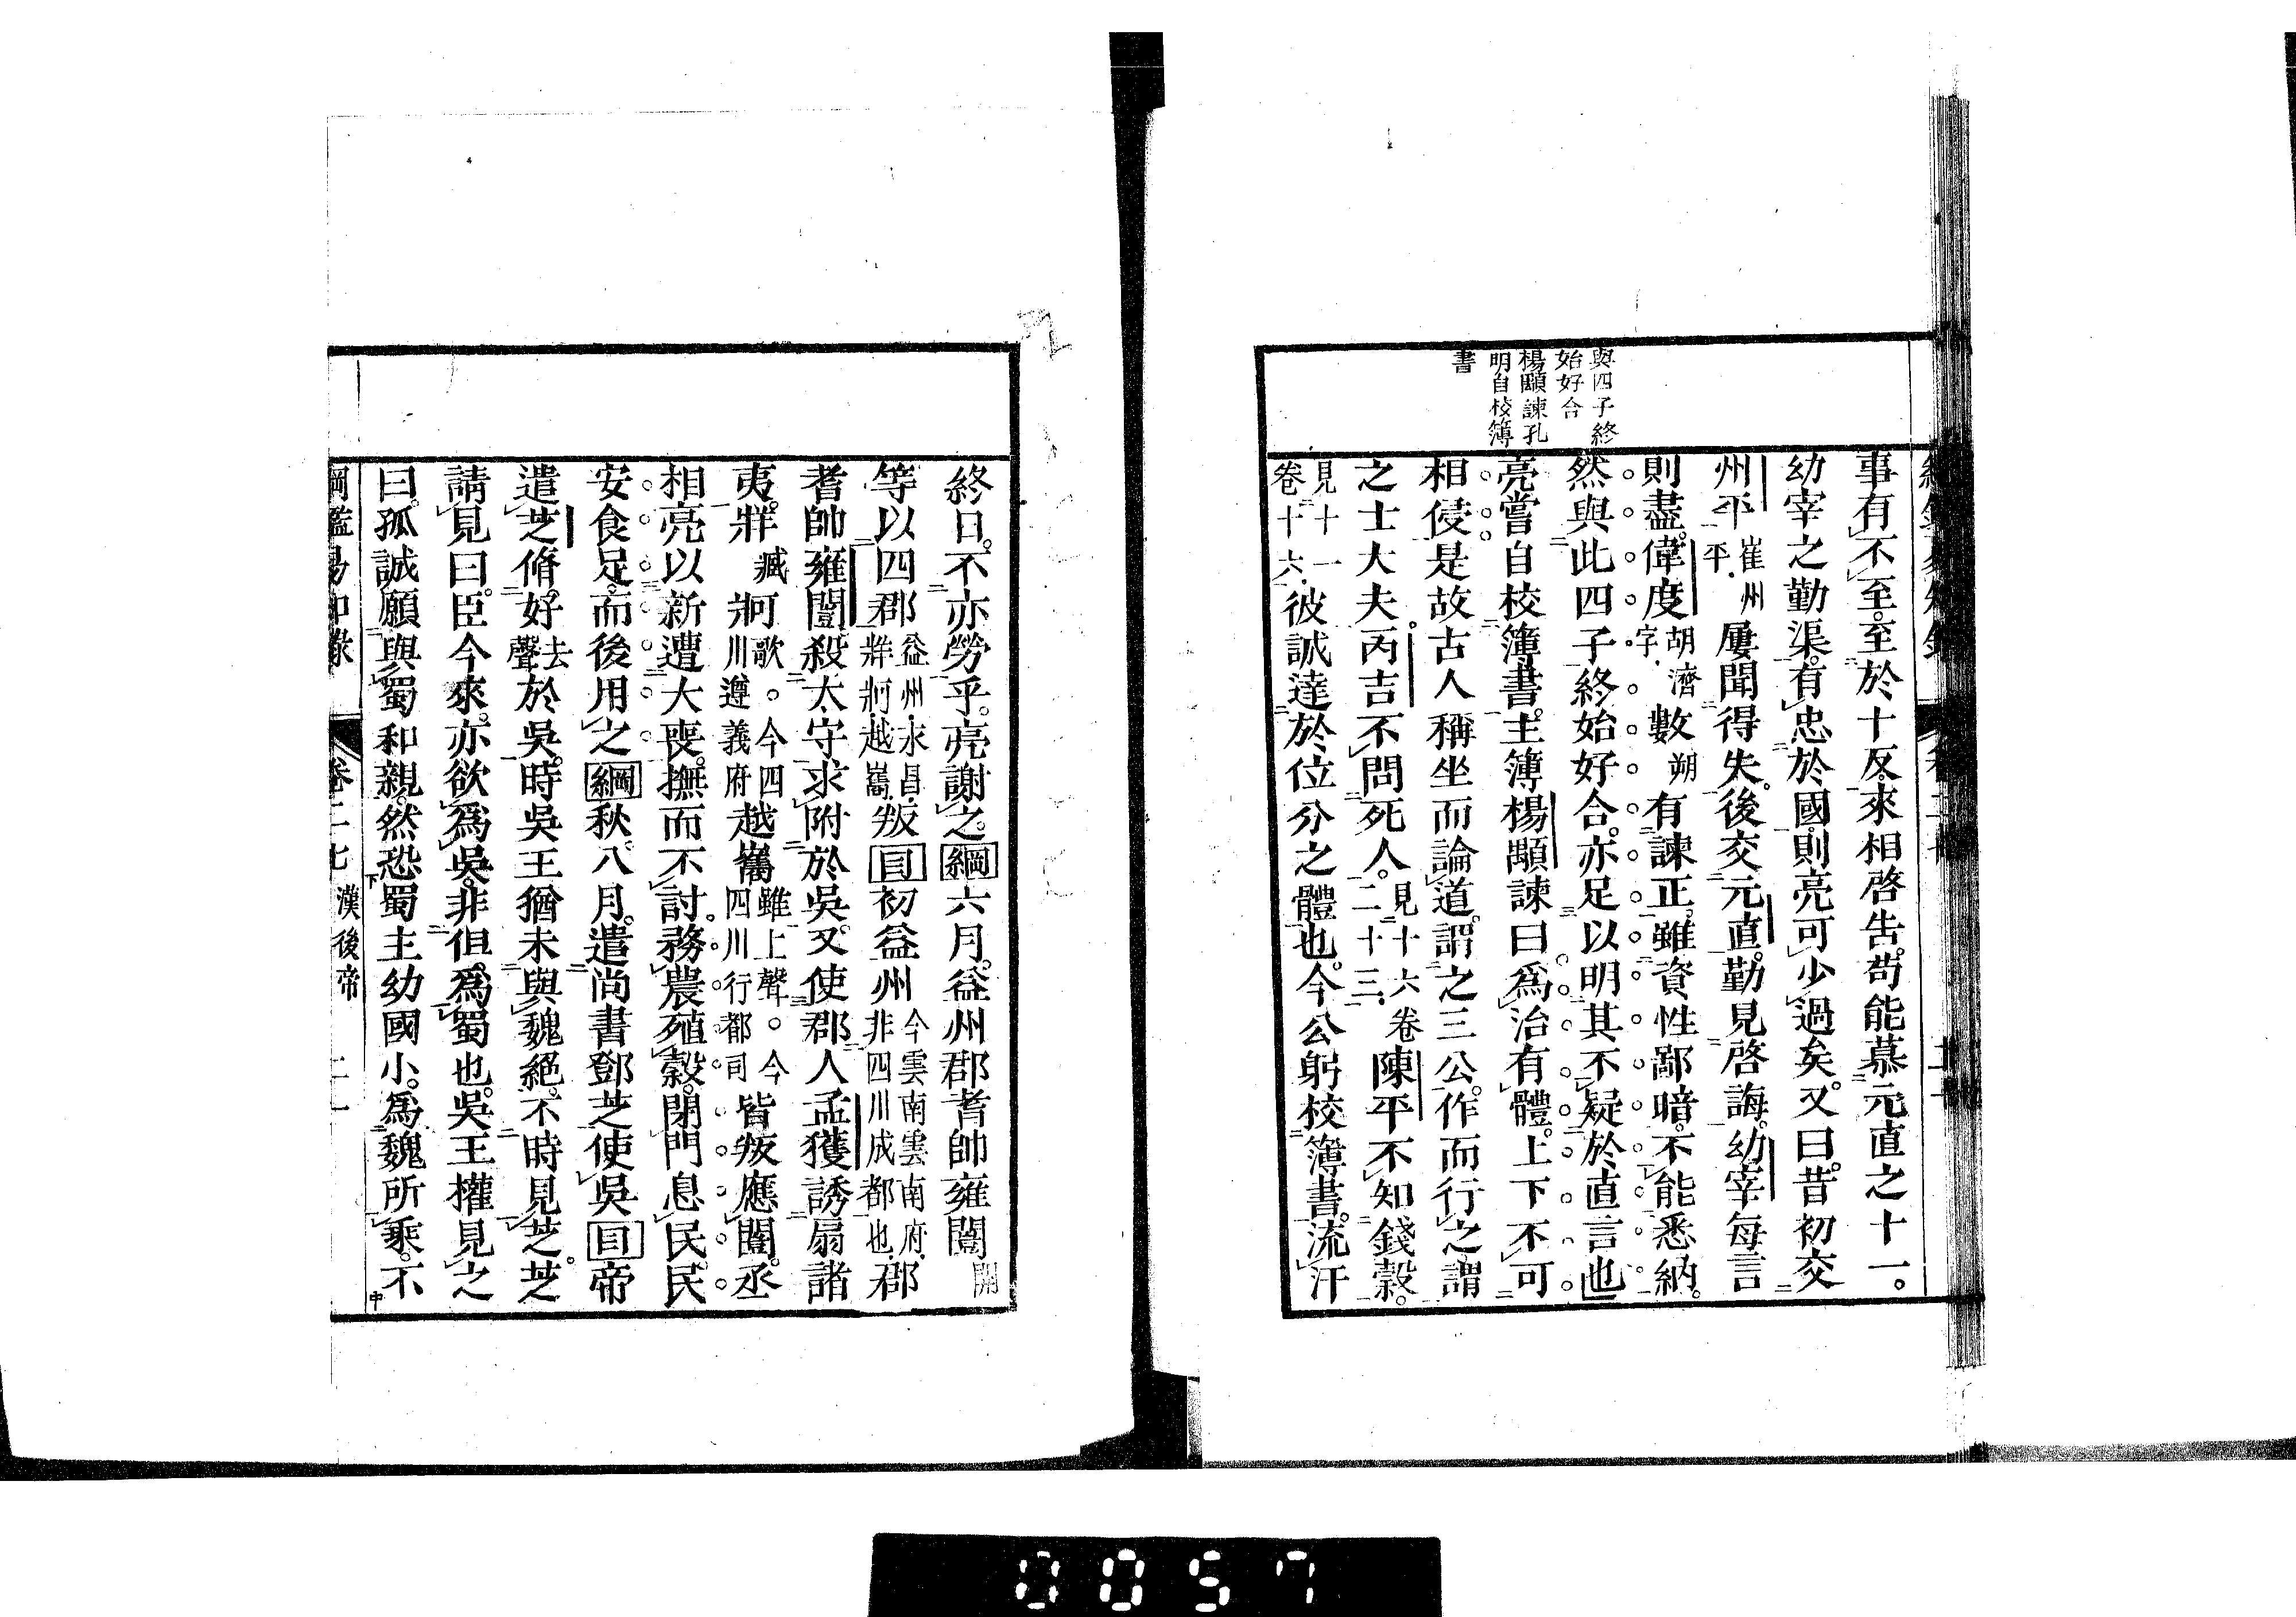 與四子終
始好合
楊顒諫孔
明自校簿
書
事有不至。至於十反。來相啓告。苟能慕元直之十一。
幼宰之勤渠。有忠於國。則亮可少過矣。又曰。昔初交
州平崔州平。屢聞得失。後交元直。勤見啓誨。幼宰每言
則盡。偉度胡濟字。數朔有諫正。雖資性鄙暗。不能悉納。
然與此四子終始好合。亦足以明其不疑於直言也
亮嘗自校簿書。主簿楊顒諫曰。爲治有體。上下不可
相侵。是故古人稱坐而論道。謂之三公。作而行之。謂
之士大夫。丙吉不問死人。見十六卷二十三。陳平不知錢穀。
見十一卷十六。彼誠達於位分之體也。今公躬校簿書。流汗
終日。不亦勞乎。亮謝之。綱六月。益州郡耆帥雍闓開
等以四郡益州永昌牂牁越嶲。叛目初益州今雲南雲南府。非四川成都也。郡
耆帥雍闓殺太守。求附於吳。又使郡人孟獲誘扇諸
夷。牂臧牁歌。今四川遵義府越嶲雖上聲。今四川行都司皆叛應闓。丞
相亮以新遭大喪。撫而不討。務農殖穀。閉門息民。民
安食足。而後用之綱秋。八月。遣尚書鄧芝使吳目帝
遣芝脩好去聲於吳。時吳王猶未與魏絕。不時見芝。芝
請見曰。臣今來。亦欲爲吳。非但爲蜀也。吳王權見之
曰。孤誠願與蜀和親。然恐蜀主幼國小。爲魏所乘。不
綱鑑易知錄 卷二七 漢後帝
0057